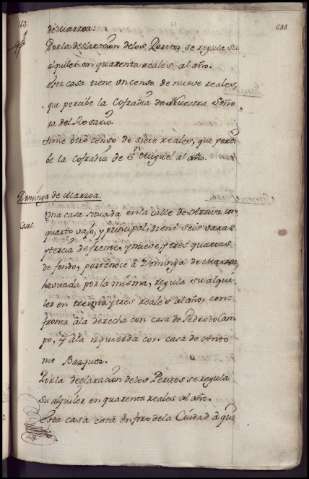 de Marroa:
Por la declaracion de los Peritos se regula su
alquiler en quarenta reales al año.
Esta casa tiene un censo de nueve reales,
que percibe la Cofradia de Nuestra Seño
ra del Rosario.
tiene otro censo de siete reales, que perci
be la cofradia de Sn Miguel al año.
Dominga de Marroa.
Casa. Una casa situada en la calle de con
quarto vajo, y principal, tiene seis varas
y tercia de frente, y nueve, y tres quartas
de fondo, pertenece à Dominga de Marroa
havitada por la misma, regula su alqui
ler en treinta y tres reales al año, con
fronta à la derecha con casa de Pedro do Cam
po, y à la izquierda con casa de Anto
nio
Por la declaracion de los Peritos se regula
su alquiler en quarenta reales al año.
Esta casa està dentro de la Ciudad à que